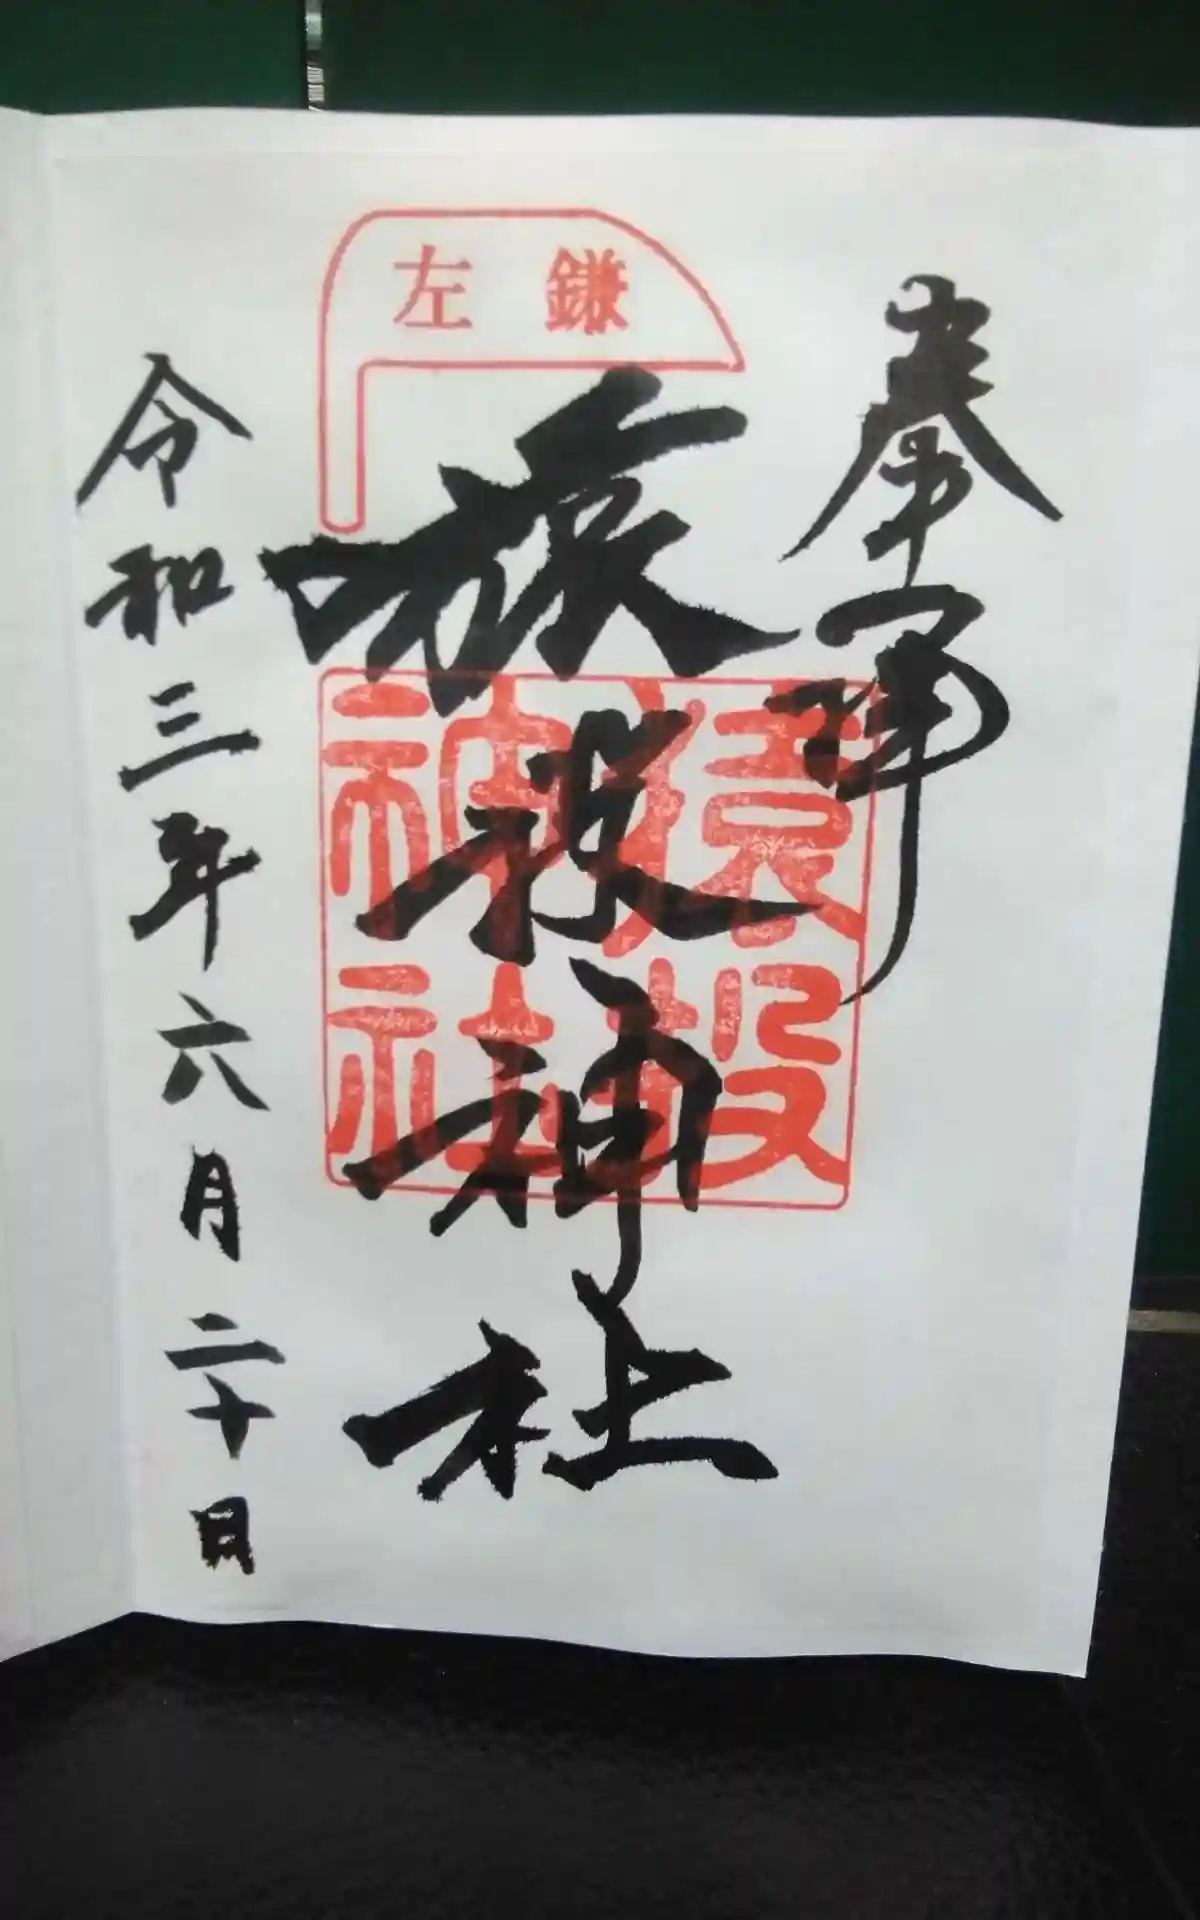 奉拝
左鎌
猿投神社
猿投
神社
令和三年六月二十日